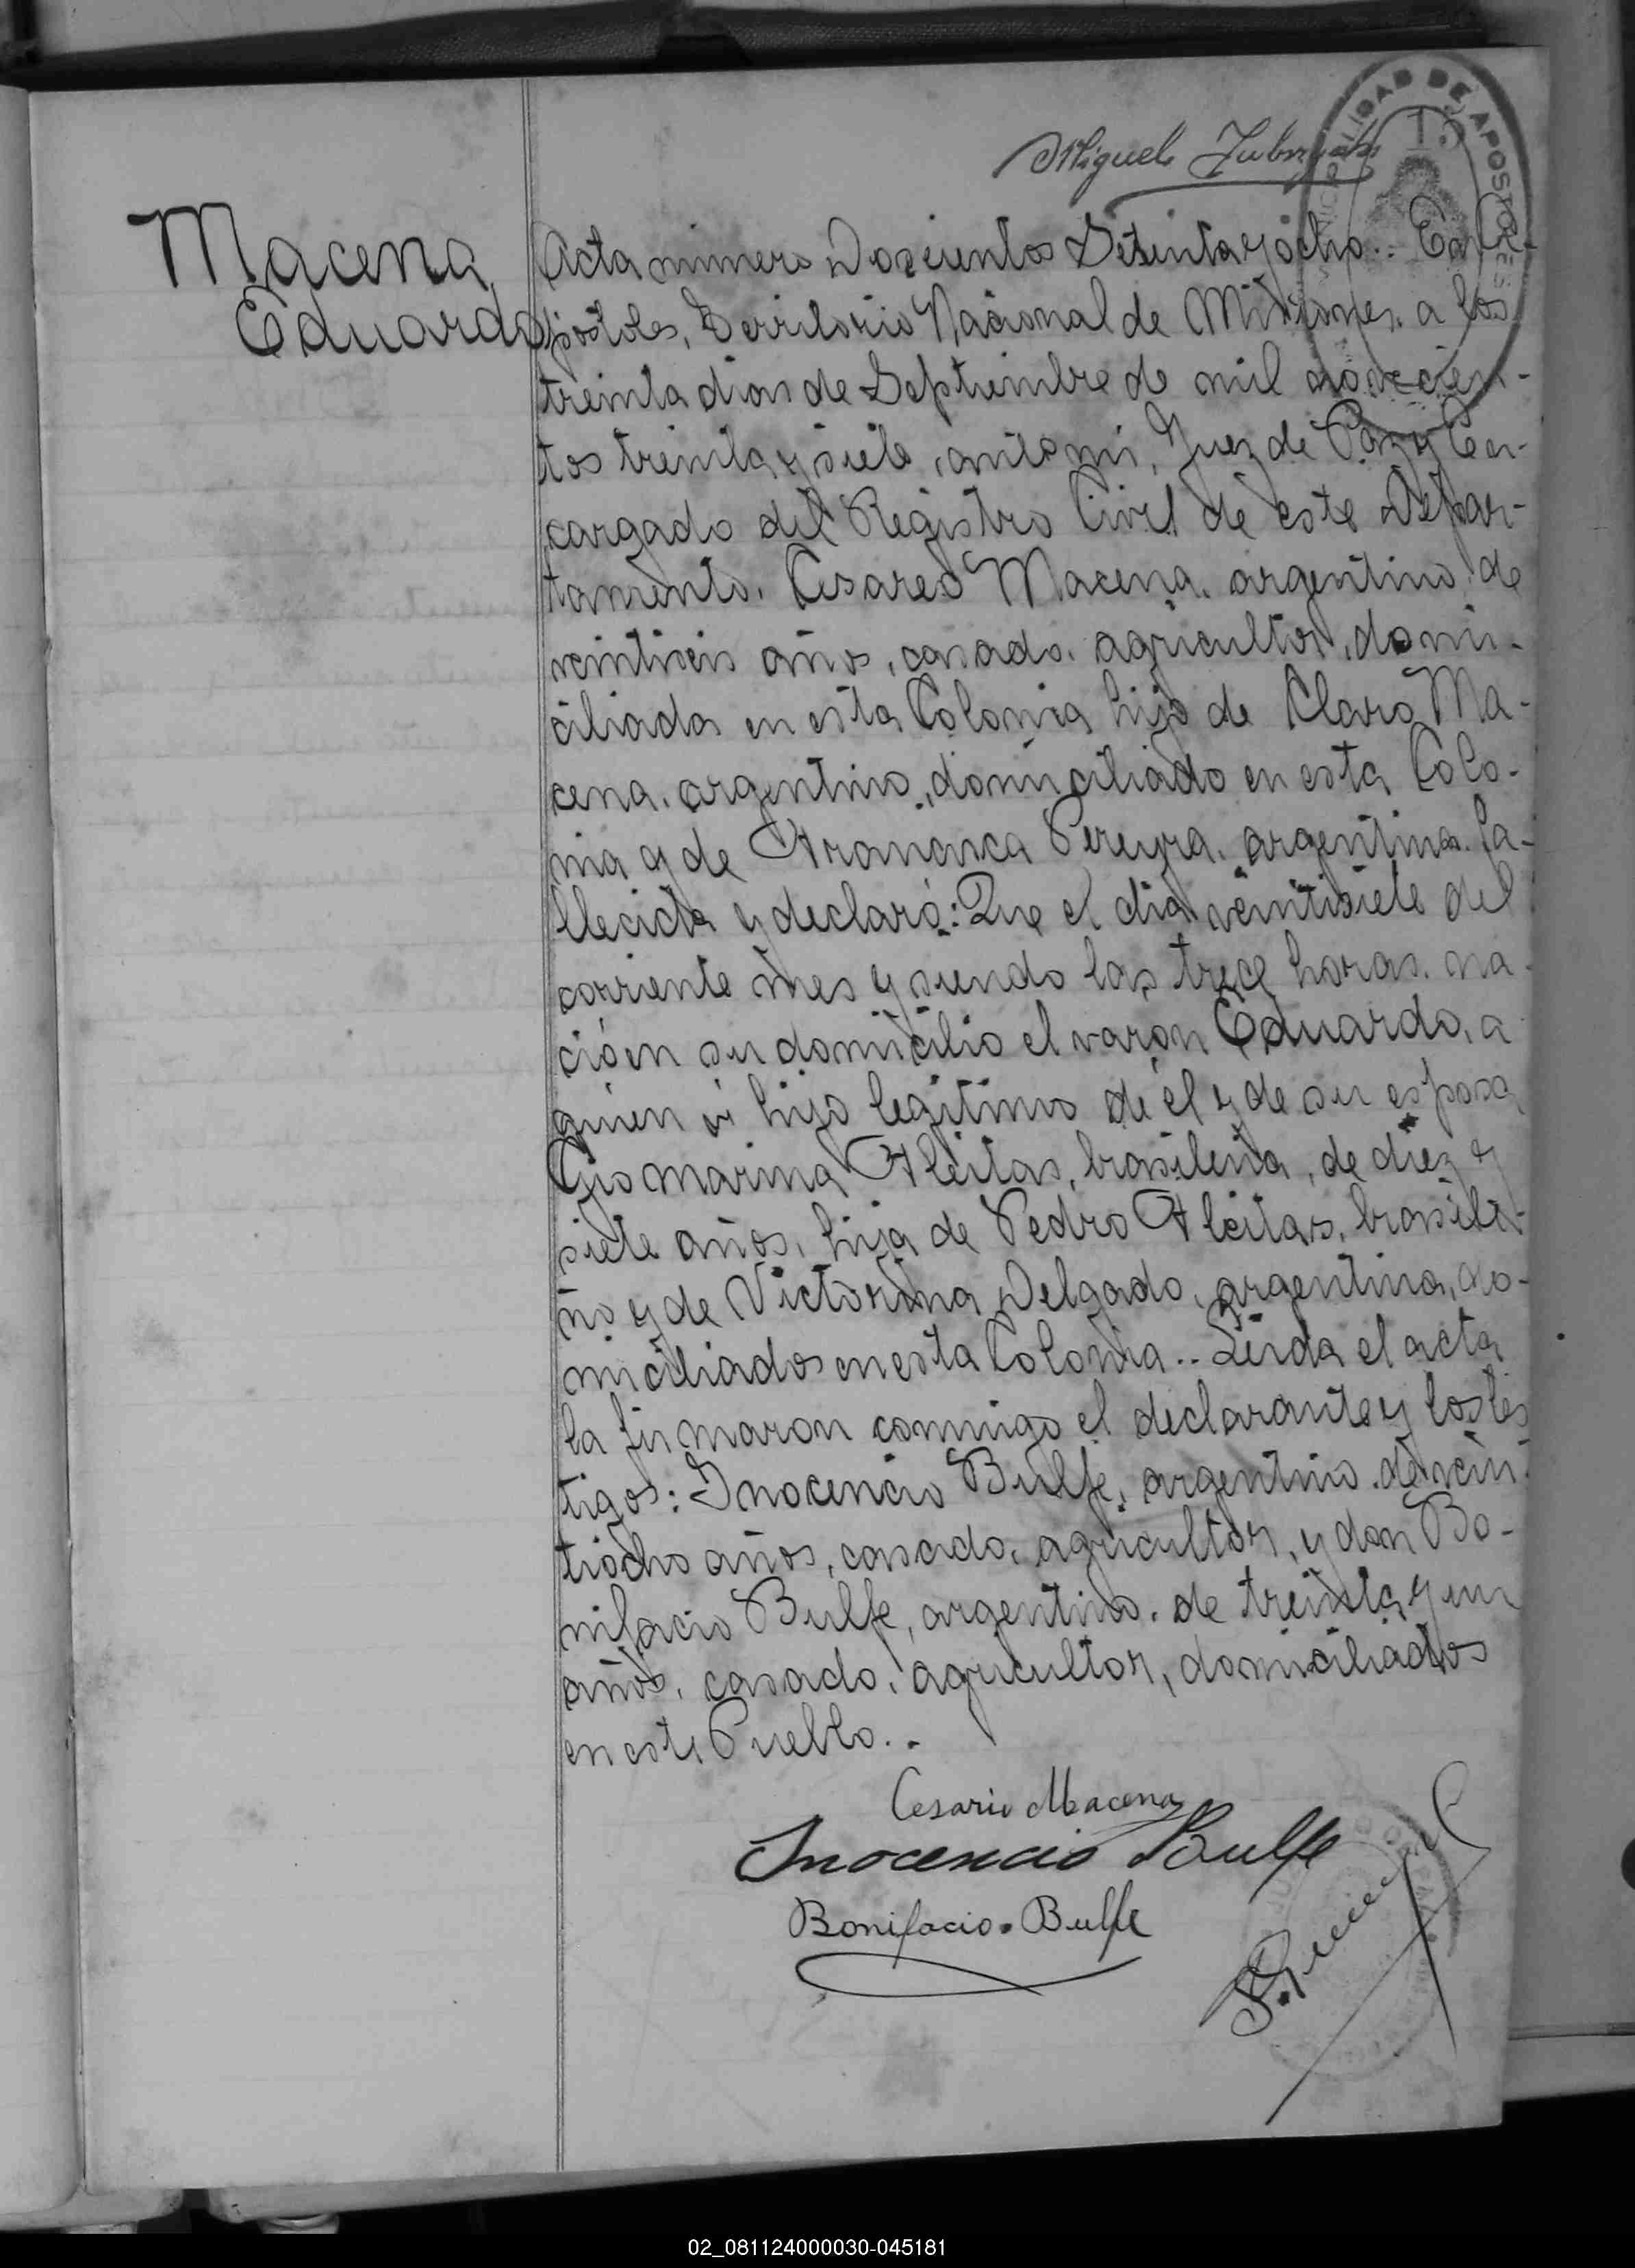 MUNICIPALIDAD DE APOSTOLES
Miguel
Macena
Eduardo
Acta número Doscientos Setenta y ocho.. En A-
póstoles, Territorio Nacional de Misiones, a los
treinta dias de Septiembre de mil novecien-
tos treinta y siete, ante mi, Juez de Paz y En-
cargado del Registro Civil de este Depar-
tamento, Cesareo Macena, argentino, de
veintiseis años, casado, agricultor, domi-
ciliado en esta Colonia hijo de Claro Ma-
cena, argentino, domiciliado en esta Colo-
nia y de Francisca Pereyra, argentina, fa-
llecida y declaró: Que el dia veintisiete del
corriente mes y siendo las trece horas, na-
ció en su domicilio el varon Eduardo, a
quien hijo legítimo de él y de su esposa
Gismarina Fleitas, brasileña, de diez y
siete años, hija de Pedro Fleitas, brasile-
ño y de Victorina Delgado, argentina, do-
miciliados en esta Colonia.. Leida el acta
la firmaron conmigo el declarante y los tes
tigos: Inocencio Bulfe, argentino, de vein-
tiocho años, casado, agricultor, y don Bo-
nifacio Bulfe, argentino, de treinta y un
años, casado, agricultor, domiciliados
en este Pueblo..
Cesario Macena
Inocencio Bulfe
Bonifacio Bulfe
02_081124000030-045181